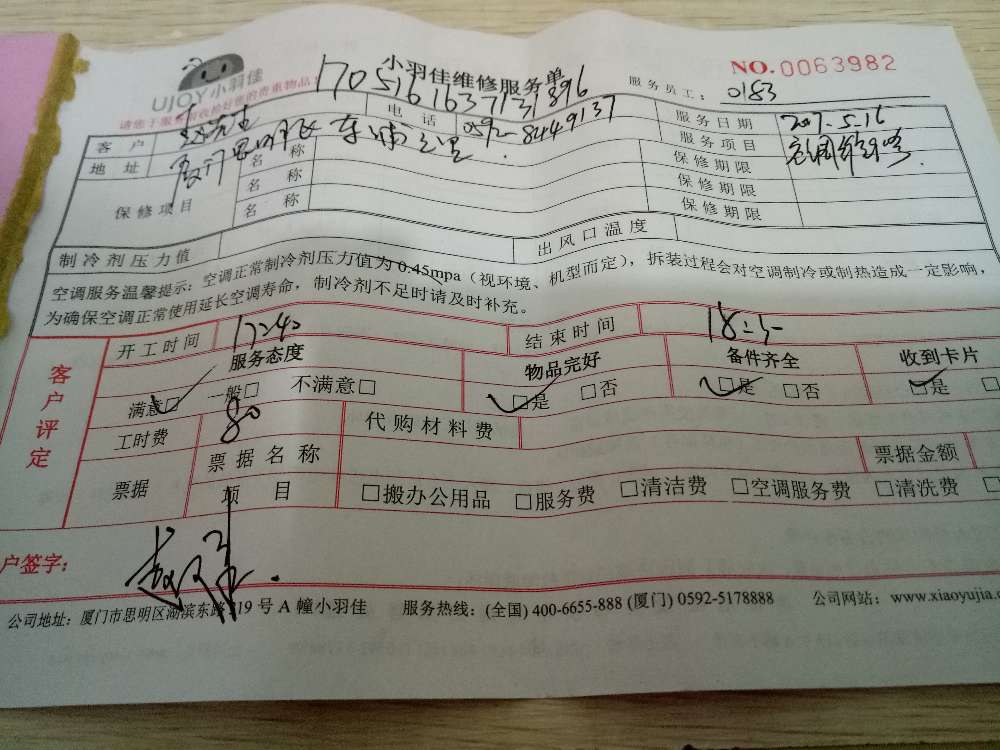 UJOY小羽佳
小羽佳维修服务单
NO.0063982
170516163713 1896
服务员工： 0183
客户 赵先生 电话 0592-8449137 服务日期 2017.5.16
地址 厦门思明区 名称 保修期限 服务项目
保修项目 名称 保修期限
名称 保修期限
制冷剂压力值 出风口温度
空调服务温馨提示：空调正常制冷剂压力值为0.45mpa（视环境、机型而定），拆装过程会对空调制冷或制热造成一定影响，
为确保空调正常使用延长空调寿命，制冷剂不足时请及时补充。
客户评定
开工时间 17:40 结束时间
服务态度 物品完好 备件齐全 收到卡片
满意□ 一般□ 不满意□ □是 □否 □是 □否 □是 □
工时费 80 代购材料费
票据 票据名称 票据金额
项目 □搬办公用品 □服务费 □清洁费 □空调服务费 □清洗费 □
户签字：
公司地址：厦门市思明区湖滨东路319号A幢小羽佳 服务热线：(全国) 400-6655-888 (厦门) 0592-5178888 公司网站：www.xiaoyujia.c